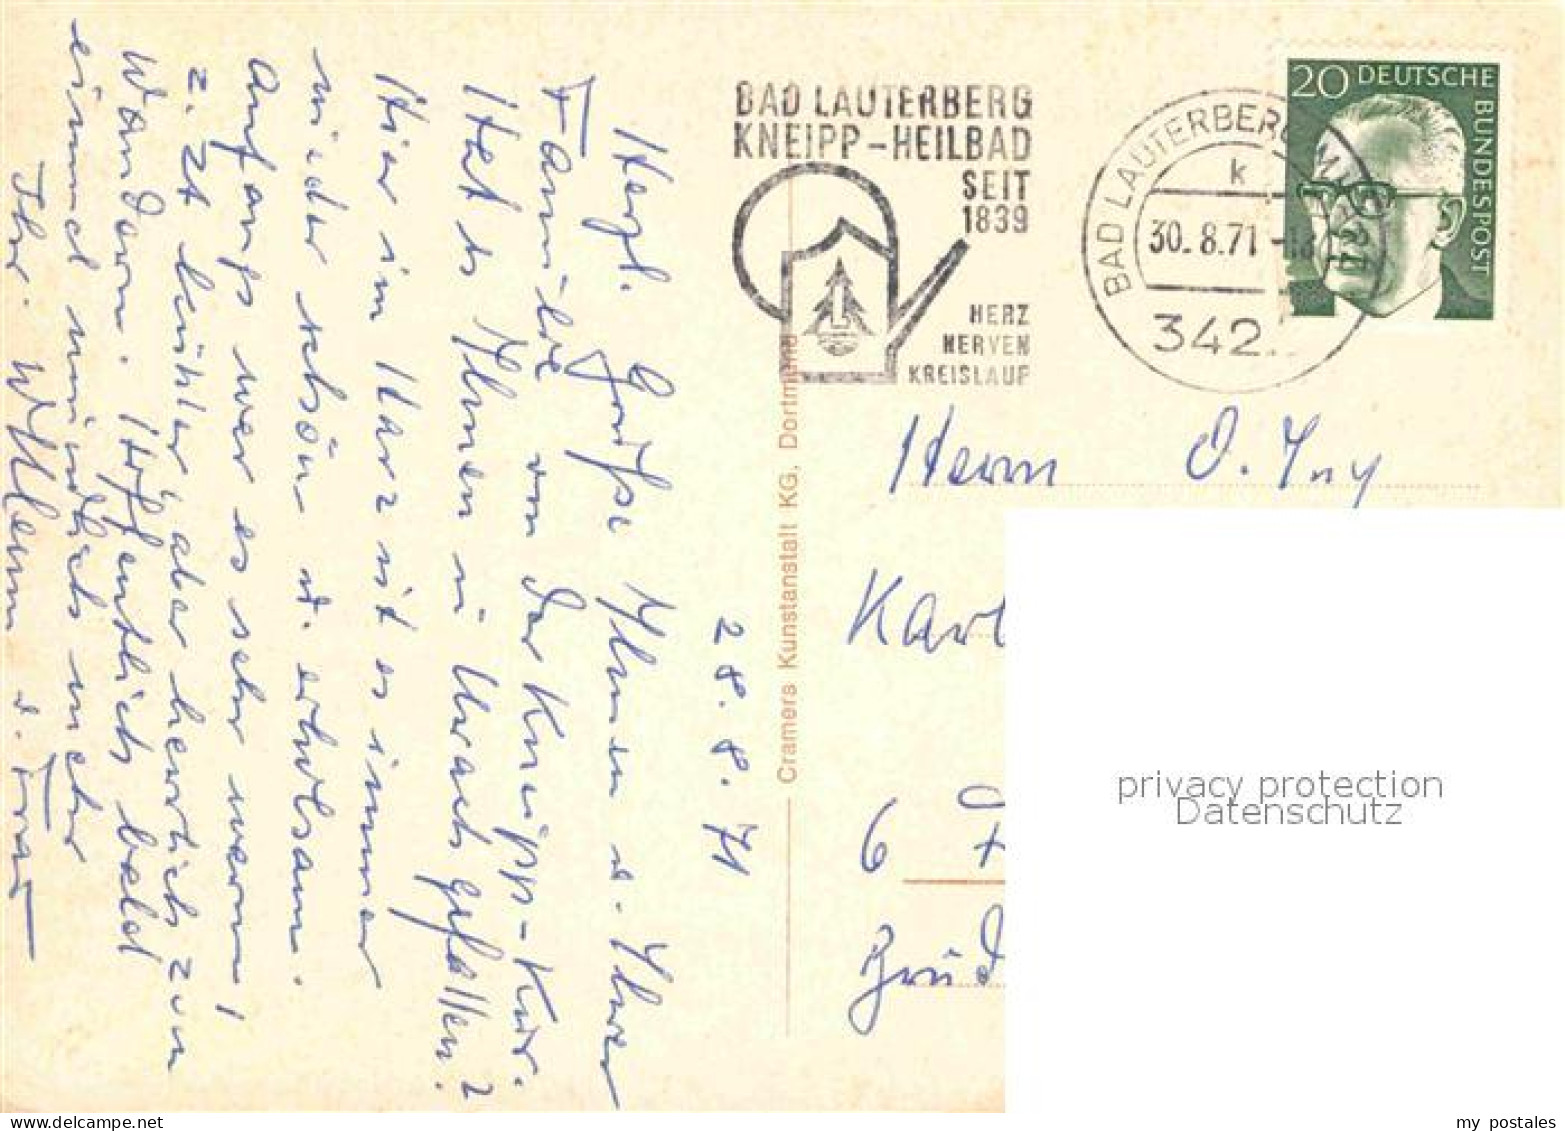 28.8.71
Herzl. Grüße Ihnen u. Ihrer
Familie von der Kneipp-Kur.
Hat es Ihnen in Urach gefallen?
Hier im Harz ist es immer
wieder schön u. erholsam.
Anfangs war es sehr warm!
z. Zt. kühler aber herrlich zum
Wandern. Hoffentlich bald
einmal mündlich mehr
Ihr u. Frau
BAD LAUTERBERG
KNEIPP-HEILBAD
SEIT
1839
HERZ
NERVEN
KREISLAUF
BAD LAUTERBERG IM
k
30.8.71
342
20 DEUTSCHE
BUNDESPOST
Cramers Kunstanstalt KG, Dortmund
Herrn O. Iny
Karl
6
Brüd
privacy protection
Datenschutz
my postales